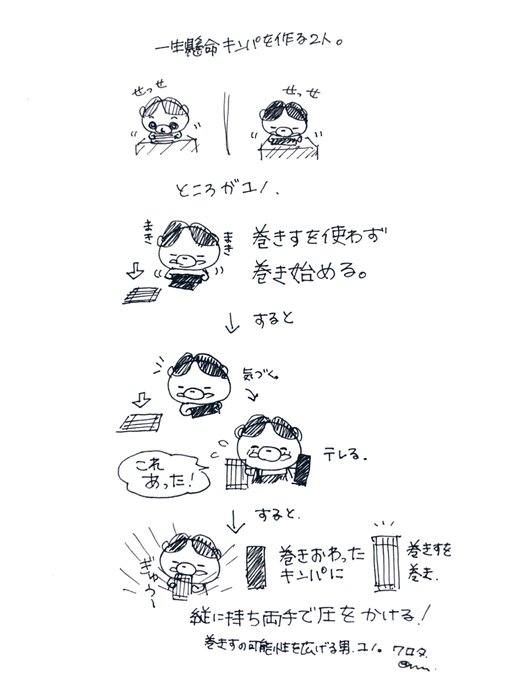 一生懸命キンパを作る2人。
せっせ
せっせ
ところがユノ、
まき
まき
巻きすを使わず
巻き始める。
すると
気づく。
テレる。
これ
あった!
すると、
ぎゅうー
巻きおわった
キンパに
巻きすを
巻き、
縦に持ち両手で圧をかける!
巻きすの可能性を広げる男、ユノ。ワロタ